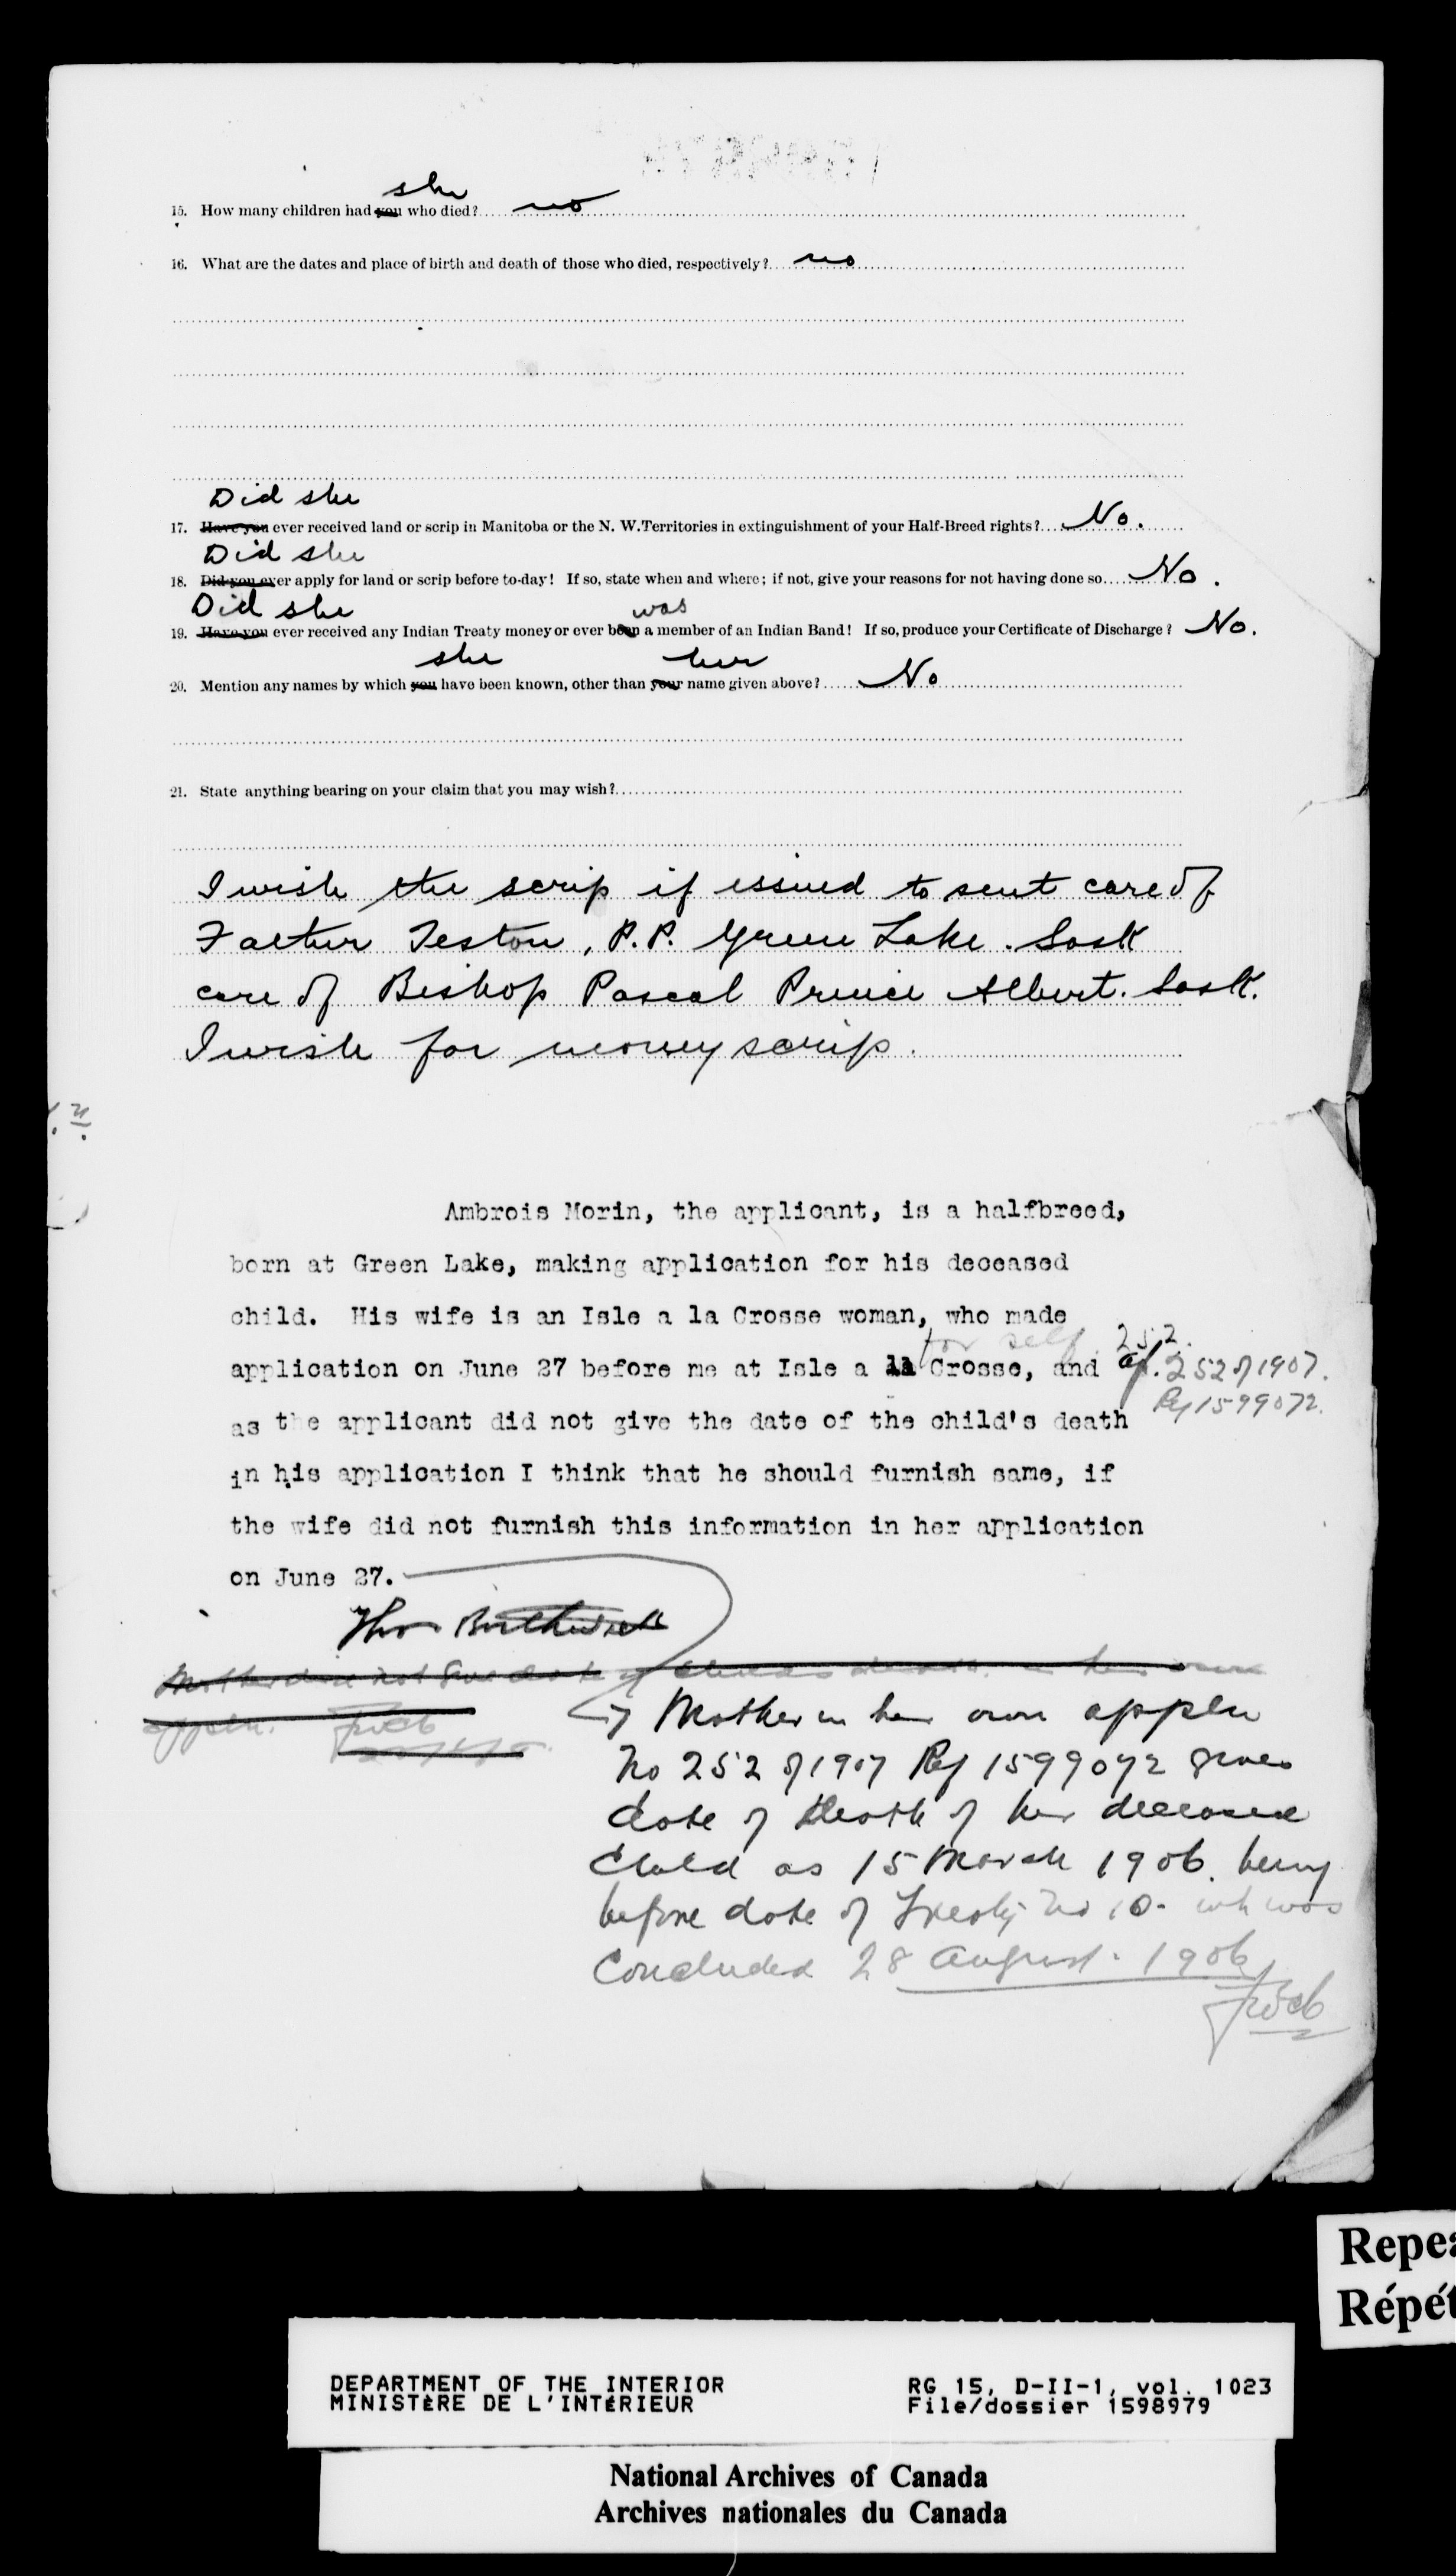 she
15. How many children had you who died? no
16. What are the dates and place of birth and death of those who died, respectively? no
Did she
17. Have you ever received land or scrip in Manitoba or the N. W. Territories in extinguishment of your Half-Breed rights? No.
Did she
18. Did you ever apply for land or scrip before to-day! If so, state when and where; if not, give your reasons for not having done so No.
Did she was
19. Have you ever received any Indian Treaty money or ever been a member of an Indian Band! If so, produce your Certificate of Discharge? No.
she her
20. Mention any names by which you have been known, other than your name given above? No
21. State anything bearing on your claim that you may wish?
I wish the scrip if issued to sent care of
Father Teston, P.P. Green Lake. Sask
care of Bishop Pascal Prince Albert. Sask.
I wish for money scrip.
Ambrois Morin, the applicant, is a halfbreed,
born at Green Lake, making application for his deceased
child. His wife is an Isle a la Crosse woman, who made
for self 252.
application on June 27 before me at Isle a la Crosse, and of. 252 of 1907.
Ref 1599072.
as the applicant did not give the date of the child's death
in his application I think that he should furnish same, if
the wife did not furnish this information in her application
on June 27.
Mother does not give date of childs death in her own
appln.
Mother in her own appln
No 252 of 1907 Ref 1599072 gives
date of death of her deceased
child as 15 March 1906. being
before date of Treaty No 10. wh was
concluded 28 August. 1906
Repea
Répét
DEPARTMENT OF THE INTERIOR RG 15, D-II-1, vol. 1023
MINISTÈRE DE L'INTÉRIEUR File/dossier 1598979
National Archives of Canada
Archives nationales du Canada